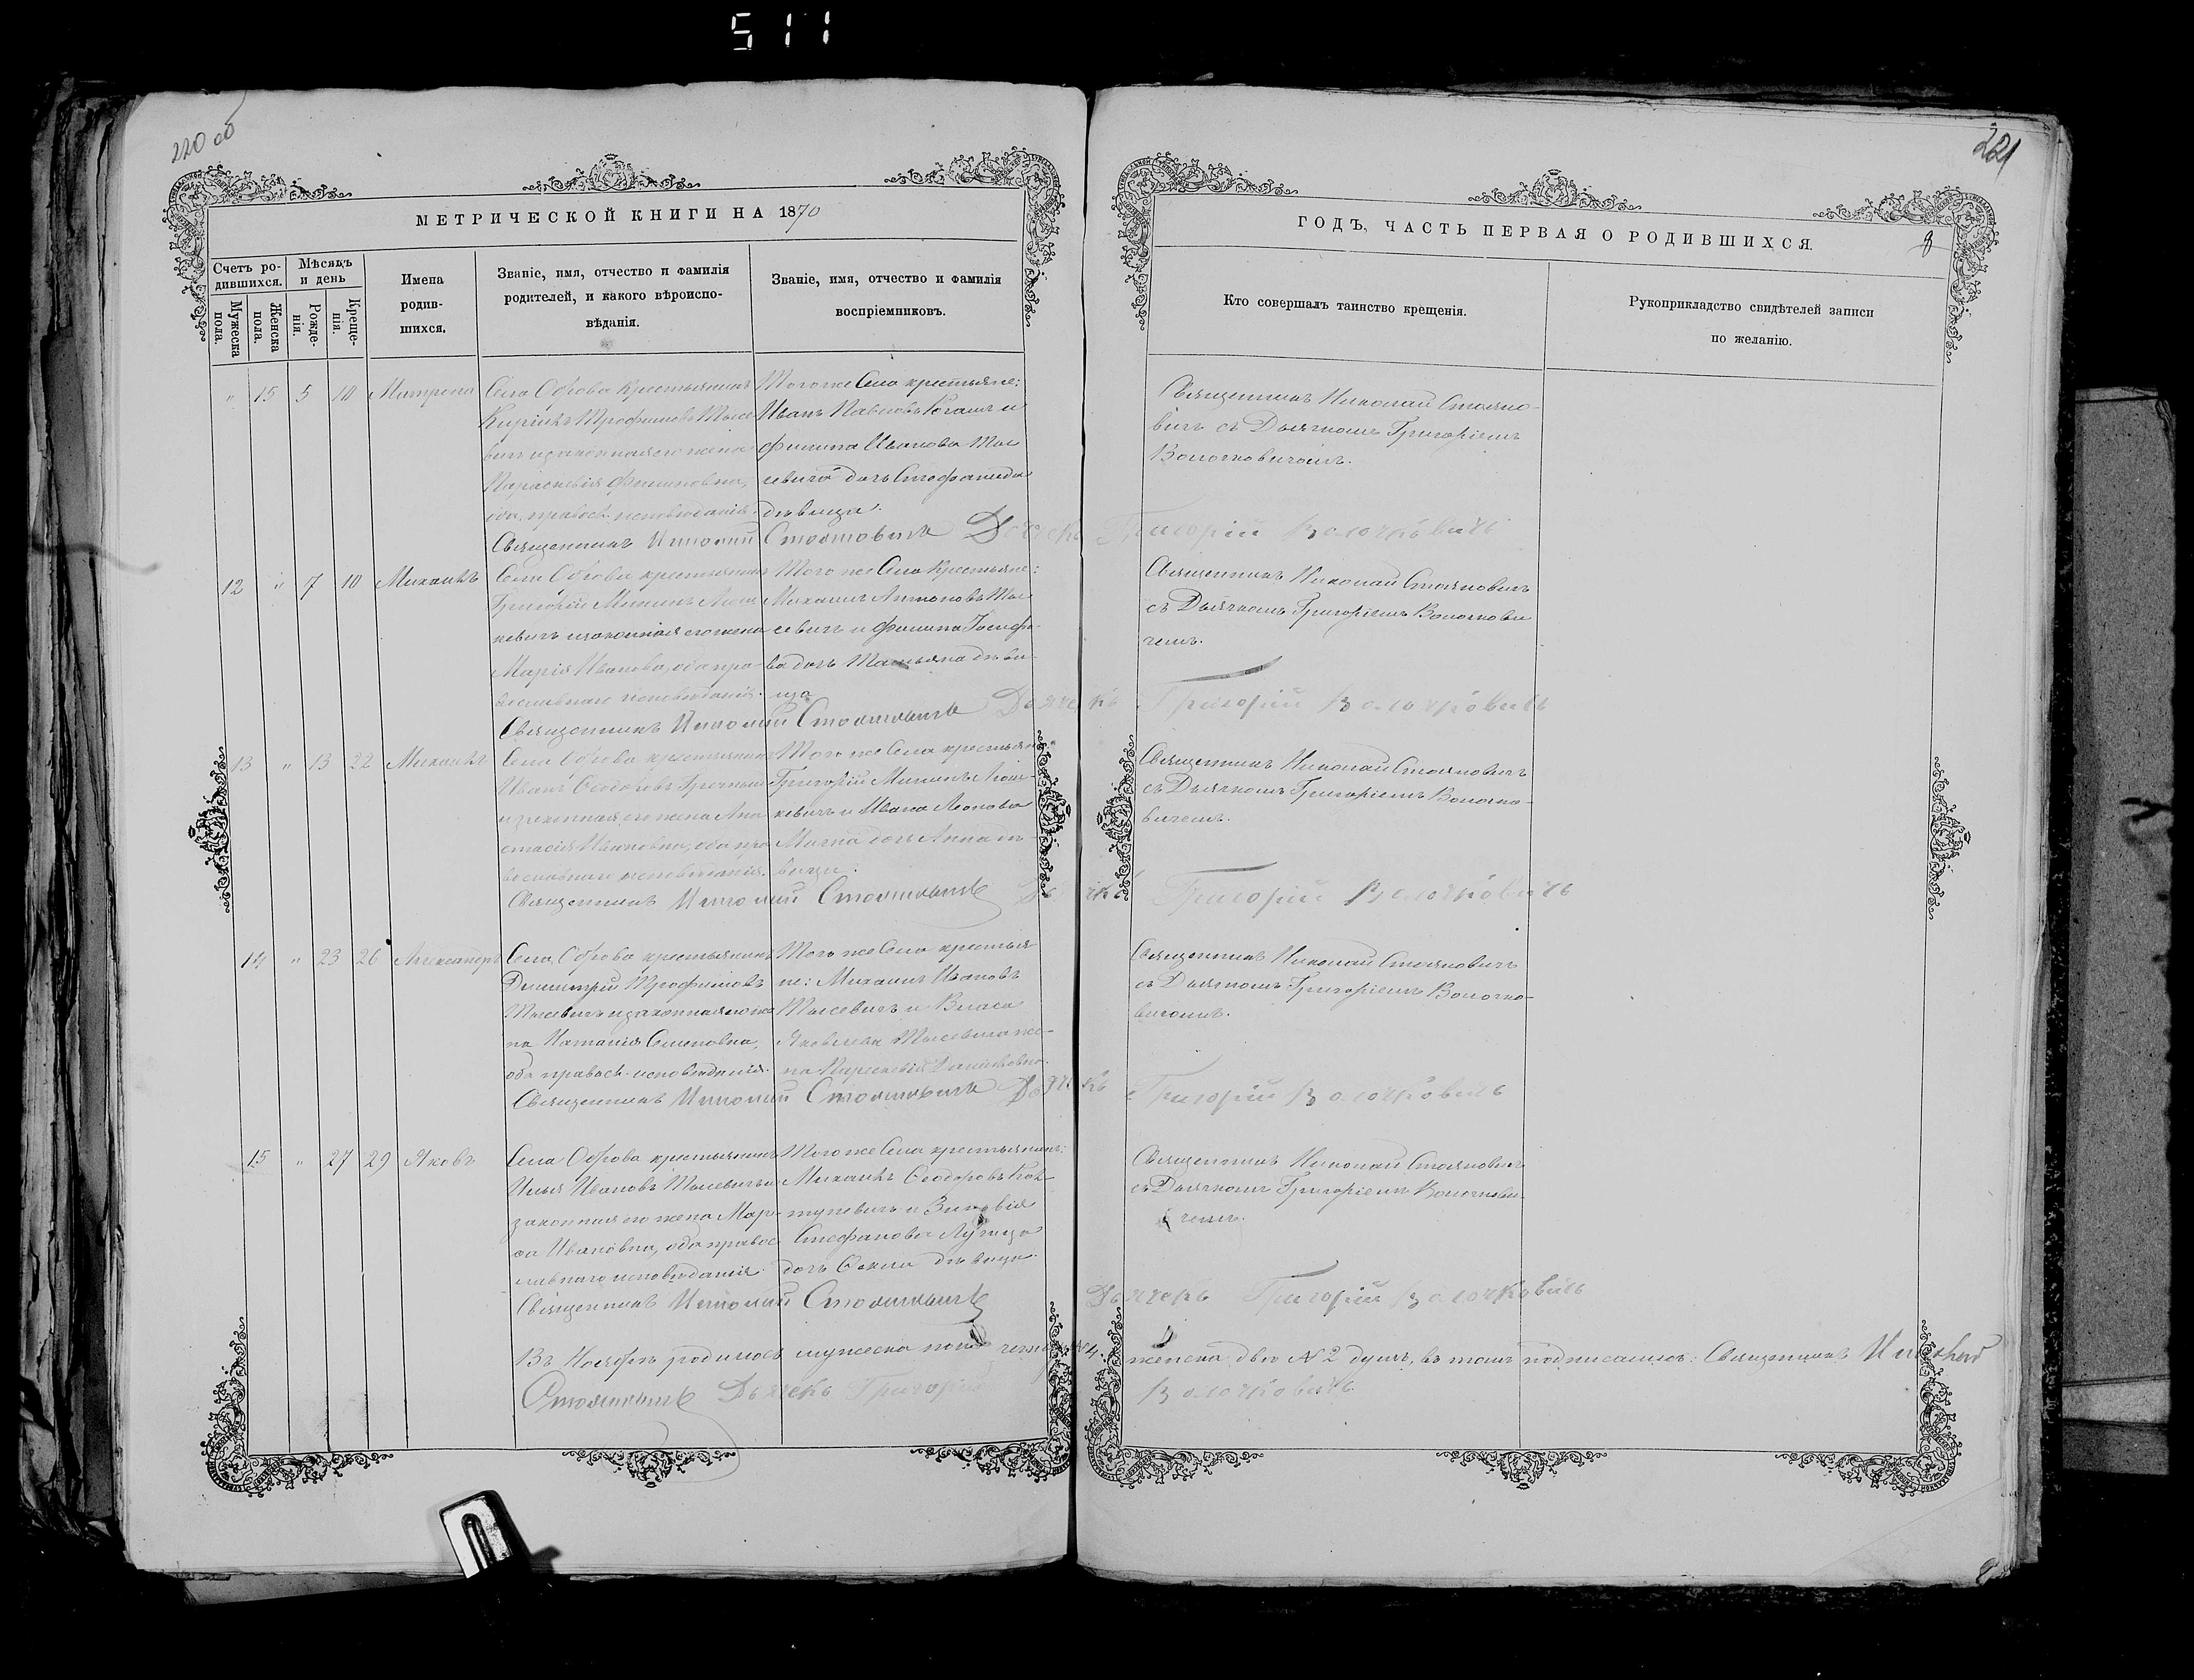 511
220 об
221
МЕТРИЧЕСКОЙ КНИГИ НА 1870
ГОДЪ, ЧАСТЬ ПЕРВАЯ О РОДИВШИХСЯ.
8
Счетъ ро-
дившихся.
Мужеска пола.
Женска пола.
Мѣсяцъ
и день
Рожде-
нія.
Креще-
нія.
Имена
родив-
шихся.
Званіе, имя, отчество и фамилія
родителей, и какого вѣроиспо-
вѣданія.
Званіе, имя, отчество и фамилія
воспріемниковъ.
Кто совершалъ таинство крещенія.
Рукоприкладство свидѣтелей записи
по желанію.
" 15 5 10 Матрона
Села Оброва крестьянинъ
Кирикъ Трофимовъ Тысе
вичъ и законная его жена
Параскевія Филиповна,
оба правосл. исповѣданія.
Того же Села крестьяне:
Иванъ Павловъ и
Филипа Иванова Ты
севича дочь Стефанида
дѣвица.
Священникъ Николай Стояно-
вичъ съ Дьячкомъ Григоріемъ
Волочковичомъ.
Священникъ Николай Стояновичъ Дьячекъ Григорій Волочковичь
12 " 7 10 Михаилъ
Села Оброва крестьянинъ
Григорій Мининъ Лош
кевичъ и законная его жена
Марія Иванова, оба пра-
вославнаго исповѣданія.
Того же Села Крестьяне:
Михаилъ Антоновъ Ты
севичъ и Филипа Іосифо-
ва дочь Татьяна дѣви-
ца
Священникъ Николай Стояновичъ
съ Дьячкомъ Григоріемъ Волочкови
чемъ.
Священникъ Николай Стояновичъ Дьячекъ Григорій Волочковичь
13 " 13 22 Михаилъ
Села Оброва крестьянинъ
Иванъ Ѳеодоровъ
и законная его жена Ана
стасія Ивановна, оба пра
вославнаго исповѣданія.
Того же Села крестьяне
Григорій Мининъ Лош-
кевичъ и Ивана Леонова
дочь Анна дѣ-
вица.
Священникъ Николай Стояновичъ
съ Дьячкомъ Григоріемъ Волочко-
вичемъ.
Священникъ Николай Стояновичъ Дьячекъ Григорій Волочковичь
14 " 23 26 Александръ
Села Оброва крестьянинъ
Димитрій Трофимовъ
Тысевичъ и законная его же
на Наталія Семеновна,
оба правосл. исповѣданія.
Того же Села крестья
не: Михаилъ Ивановъ
Тысевичъ и Власа
Яковлева Тысевича же-
на Параскевія
Священникъ Николай Стояновичъ
съ Дьячкомъ Григоріемъ Волочко-
вичомъ.
Священникъ Николай Стояновичъ Дьячекъ Григорій Волочковичь
15 " 27 29 Яковъ
Села Оброва крестьянинъ
Илья Ивановъ Тысевичъ и
законная его жена Мар-
ѳа Ивановна, оба правос
лавнаго исповѣданія.
Того же Села крестьянинъ:
Михаилъ Ѳеодоровъ Ков-
туневичъ и Зиновія
Стефанова
дочь Ѳекла дѣвица.
Священникъ Николай Стояновичъ
съ Дьячкомъ Григоріемъ Волочкови
чемъ.
Священникъ Николай Стояновичъ Дьячекъ Григорій Волочковичь
Въ Ноябрѣ родилось мужеска пола четыре №4. женска двѣ №2 душъ, въ томъ подписались: Священникъ Николай
Стояновичъ Дьячекъ Григорій Волочковичь